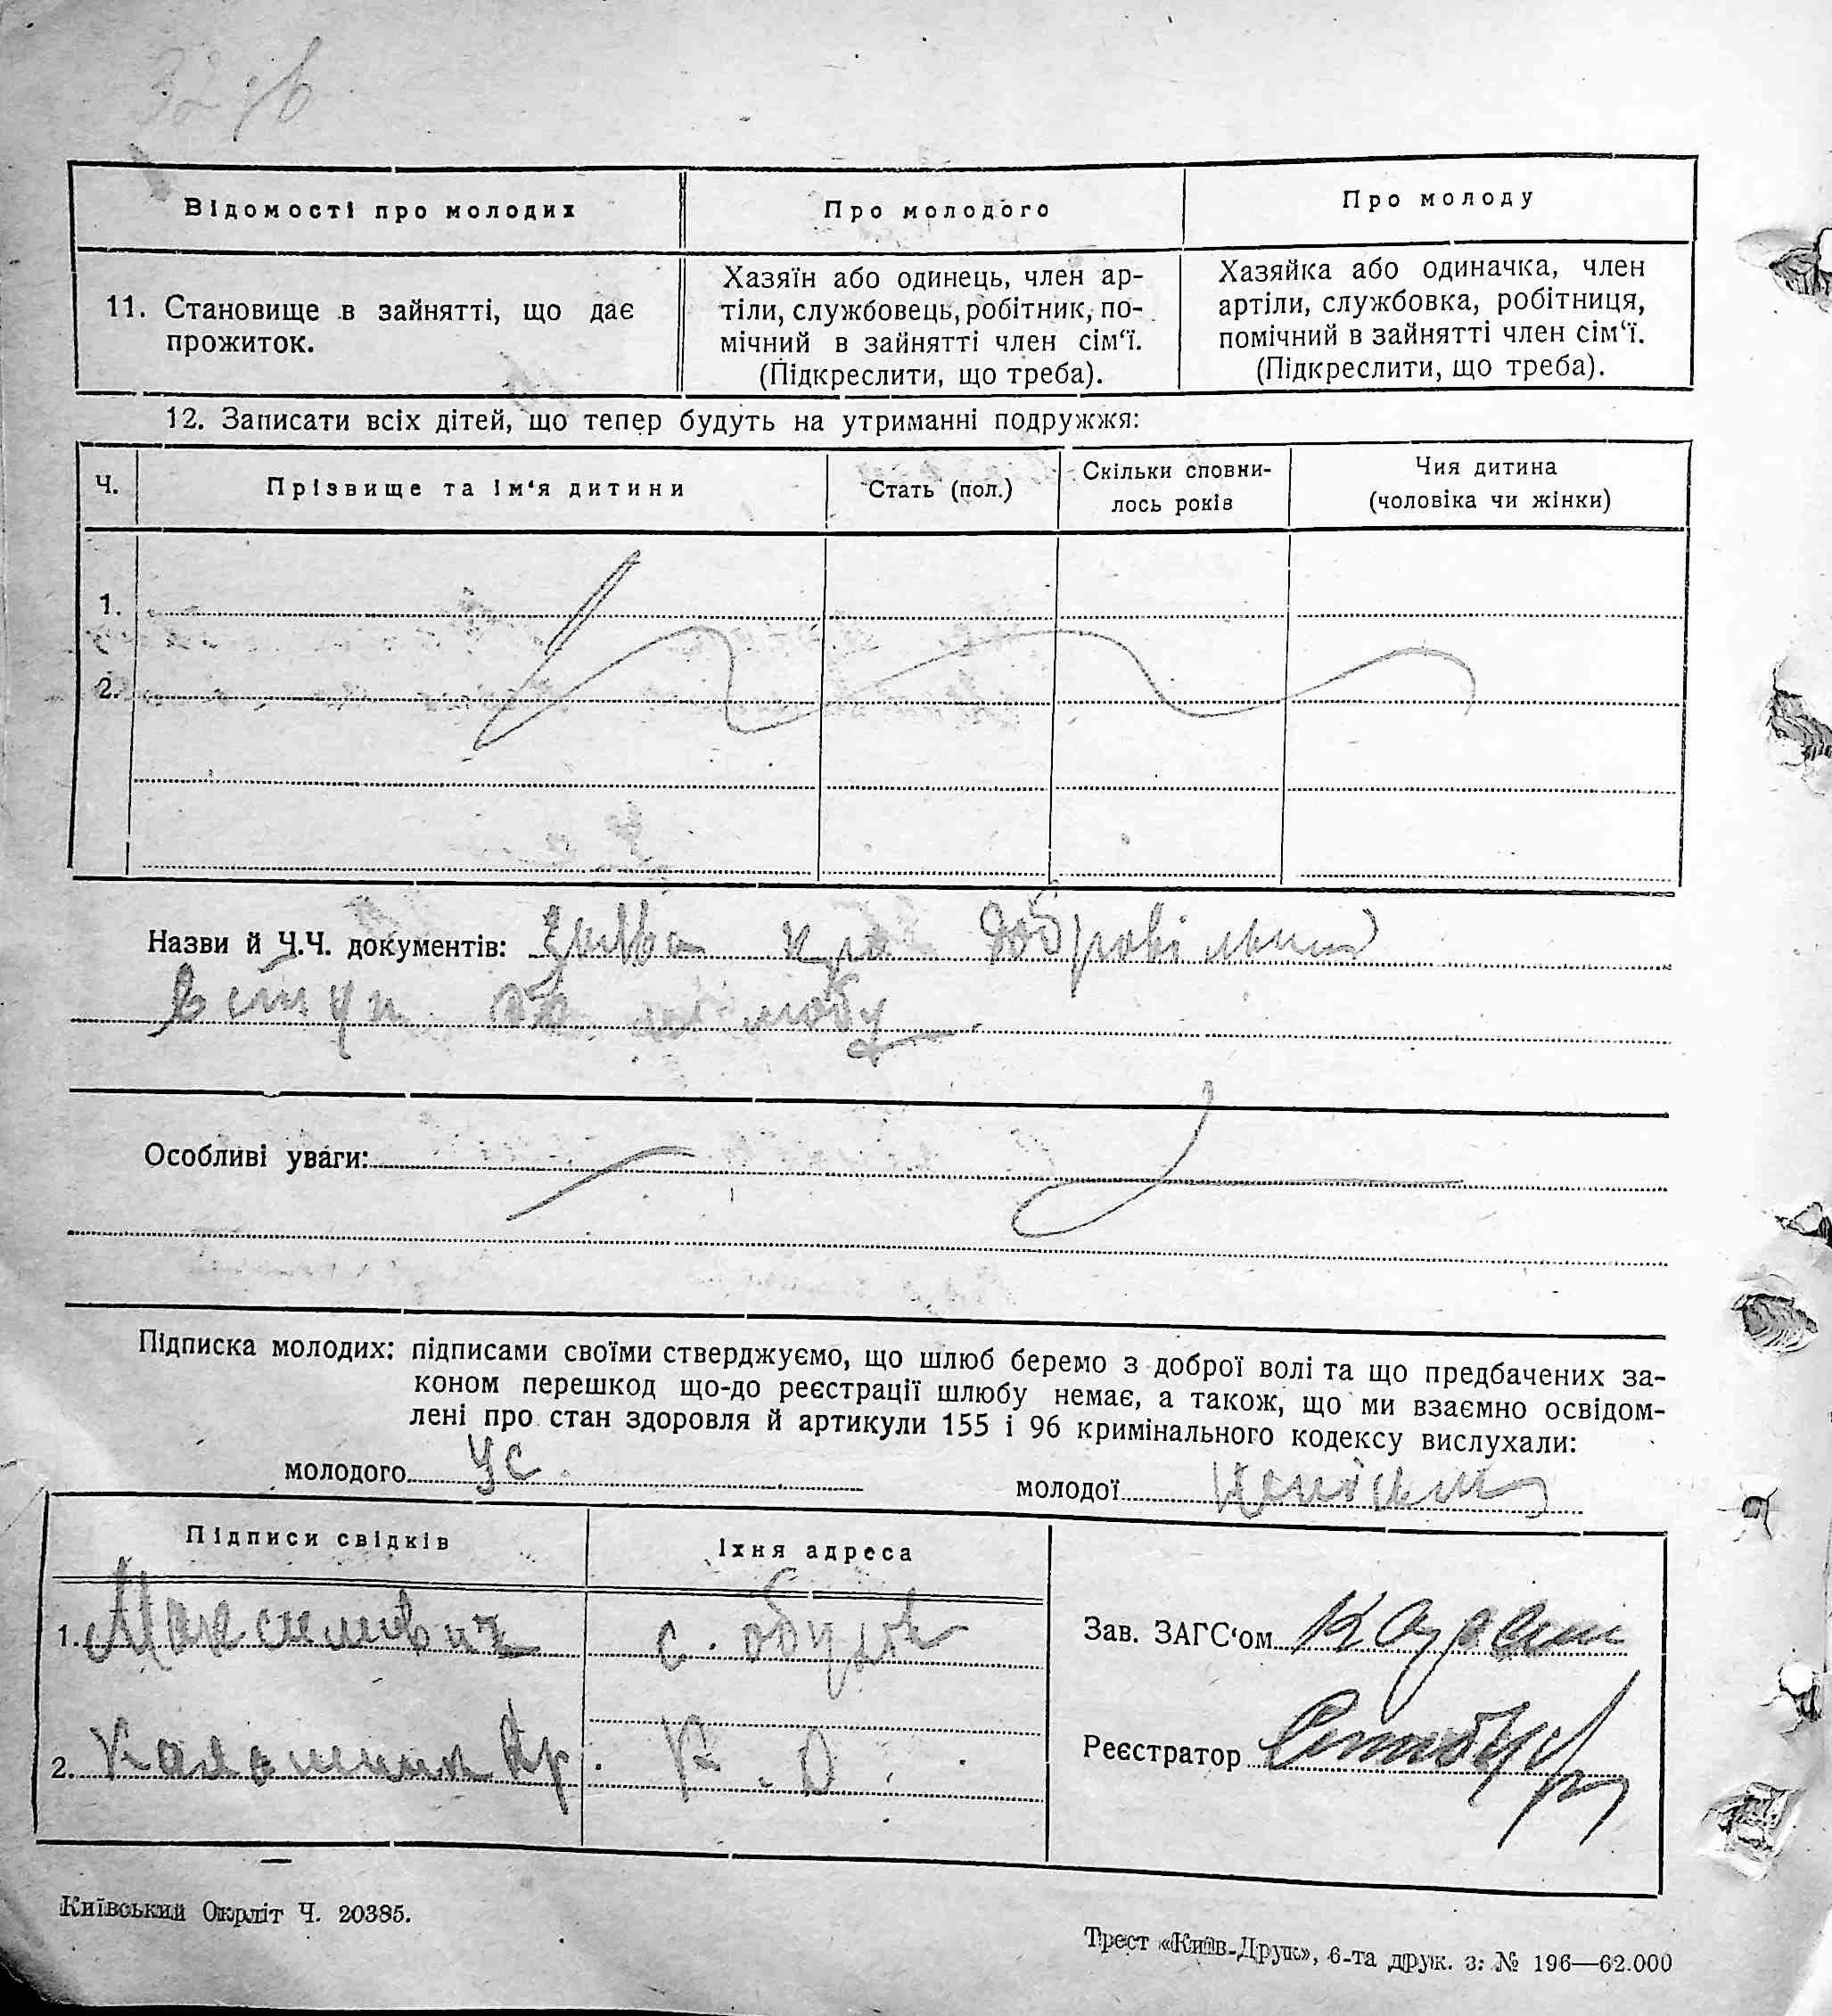 32 зв
Відомості про молодих
Про молодого
Про молоду
11. Становище в зайнятті, що дає
прожиток.
Хазяїн або одинець, член ар-
тіли, службовець, робітник, по-
мічний в зайнятті член сім‘ї.
(Підкреслити, що треба).
Хазяйка або одиначка, член
артіли, службовка, робітниця,
помічний в зайнятті член сім‘ї.
(Підкреслити, що треба).
12. Записати всіх дітей, що тепер будуть на утриманні подружжя:
Ч.
Прізвище та ім‘я дитини
Стать (пол.)
Скільки сповни-
лось років
Чия дитина
(чоловіка чи жінки)
1.
2.
Назви й Ч.Ч. документів: Заява про добровільний
вступ до шлюбу
Особливі уваги:
Підписка молодих: підписами своїми стверджуємо, що шлюб беремо з доброї волі та що предбачених за-
коном перешкод що-до реєстрації шлюбу немає, а також, що ми взаємно освідом-
лені про стан здоровля й артикули 155 і 96 кримінального кодексу вислухали:
молодого Ус
молодої
Підписи свідків
Їхня адреса
1. Максимович
с.
Зав. ЗАГС‘ом
2.
Реєстратор
Київський Окрліт Ч. 20385.
Трест «Київ-Друк», 6-та друк. з. № 196—62.000